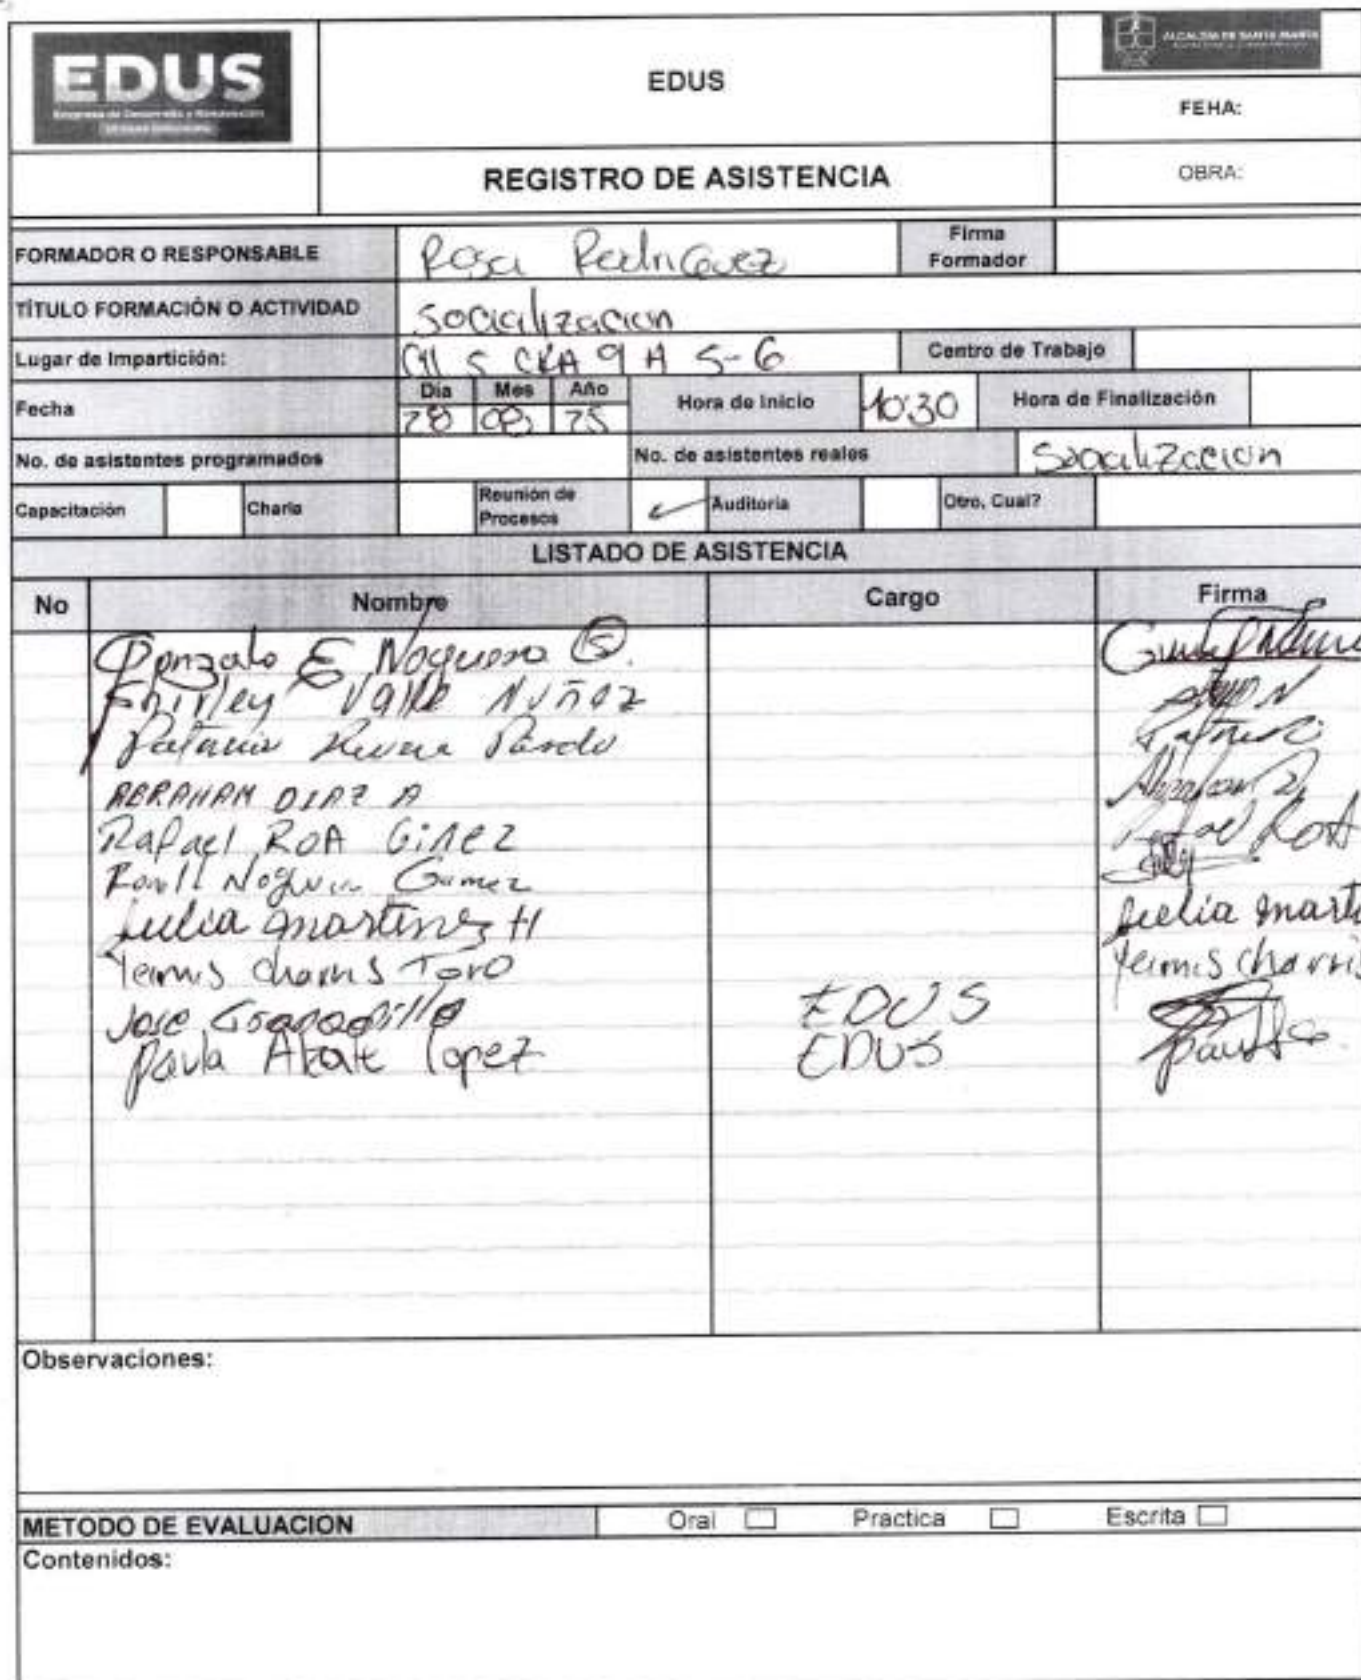 EDUS
Empresa de Desarrollo y Renovación
EDUS
ALCALDÍA DE SANTA MARTA
FEHA:
REGISTRO DE ASISTENCIA
OBRA:
FORMADOR O RESPONSABLE Rosa Rodriguez Firma Formador
TÍTULO FORMACIÓN O ACTIVIDAD Socialización
Lugar de Impartición: Cll 5 CRA 9 A 5-6 Centro de Trabajo
Fecha Día Mes Año Hora de Inicio 10:30 Hora de Finalización
28 08 25
No. de asistentes programados No. de asistentes reales Socialización
Capacitación Charla Reunión de Procesos ✓ Auditoria Otro, Cual?
LISTADO DE ASISTENCIA
No Nombre Cargo Firma
Gonzalo E Noguera G.
Shirley Valle Nuñez
Patricia Rivera Pardo
ABRAHAM DIAZ A Abraham D
Rafael ROA Ginez Rafael RoA
Noguera Gamez
Julia martinez H Julia marti
Yeimis charris Toro Yeimis charris
Jose Granadillo EDUS
Paula Alzate lopez EDUS
Observaciones:
METODO DE EVALUACION Oral Practica Escrita
Contenidos: